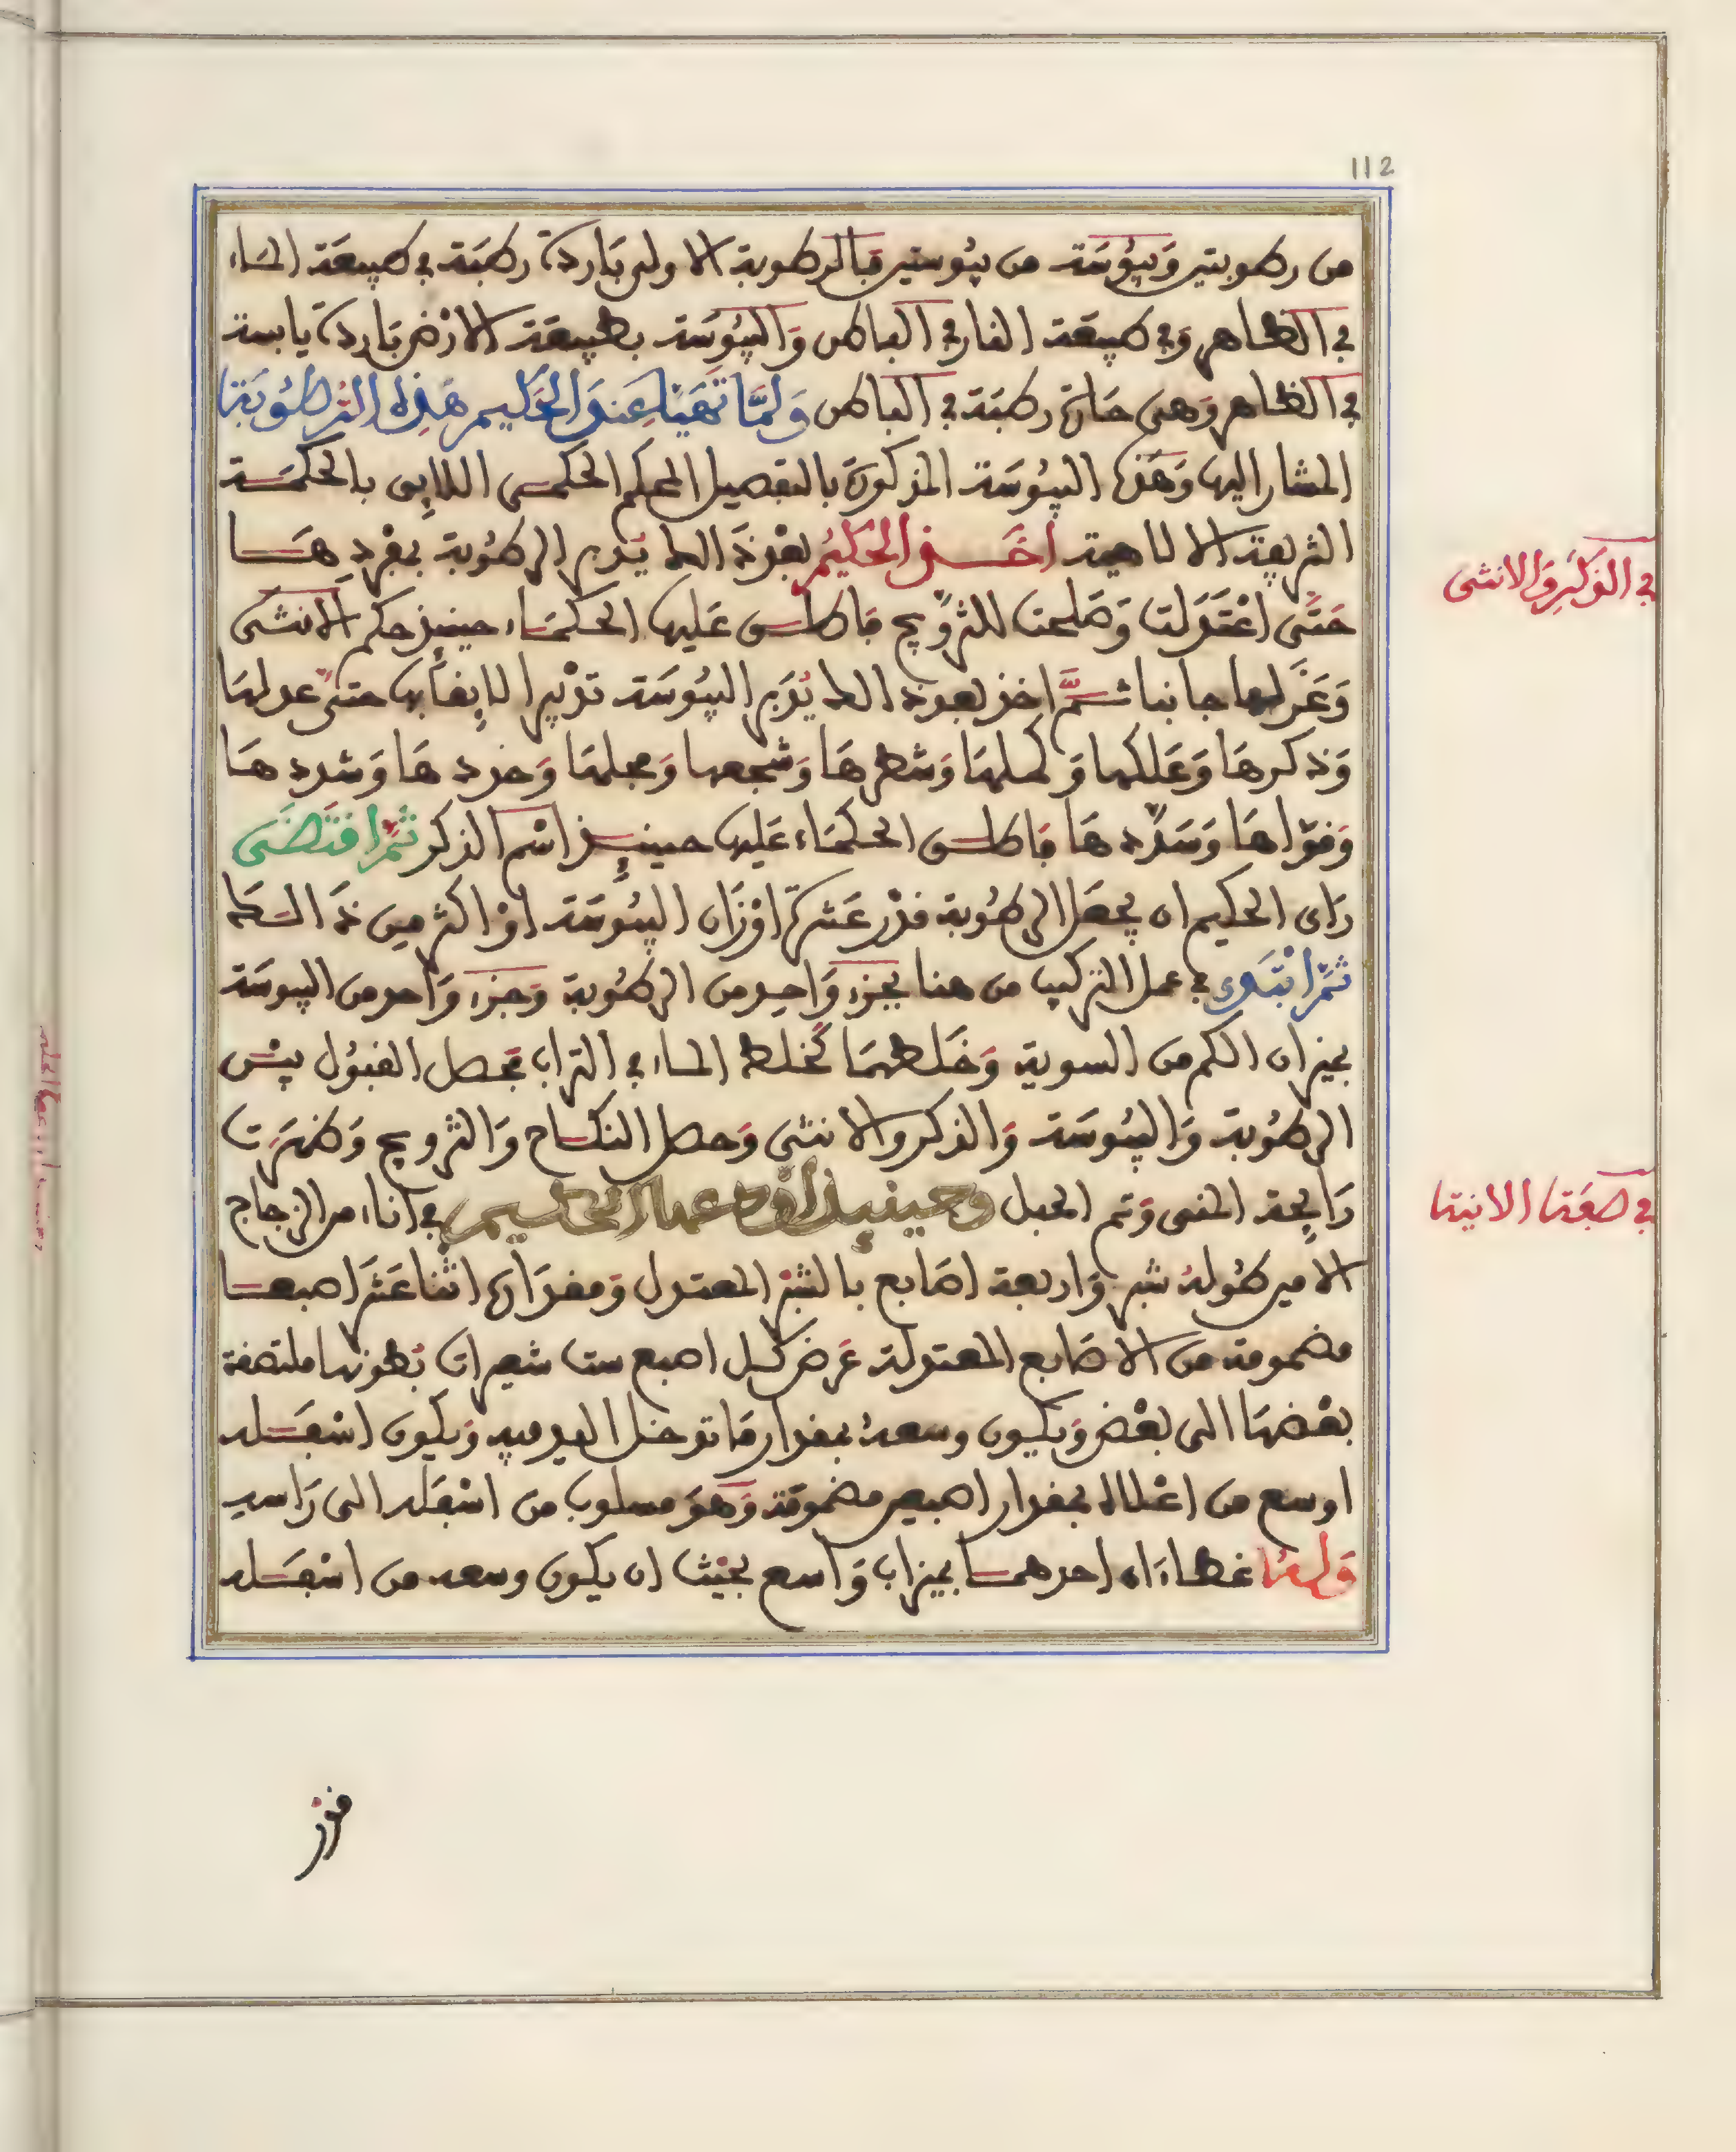 112
من رطوبتين وَيبُوسَة من يبُوستين فبالرطوبة الاولى بَاردة رطبَة في طبيعَة المَاء
في الظاهر وَفي طبيعَة النار في الباطن وَاليبُوسَة بطبيعَة الارْض بَاردة يابسة
في الظاهر وَهى حَارة رطبَة في الباطن وَلمَّا تهَيَّا عِندَ الحَكيم هَذِه الرطوبَة
المشار اليها وَهَذه اليبُوسَة المذكورَة بالتفصيل المحكم الحكمى اللايِق بالحكمَة
الشريفة الالاهية اخَذ الحَكيمُ بعْد ذَالك يُدبر الرطُوبة بمفْردِهَا
حَتَّى اعْتَدَلت وَصَلحت للتزْويج فاطلق عَليها الحكمَاء حينيذ حكم الانثَى
وَعَزَلها جانبا ثمَّ اخذ بعد ذالك يُدَبر اليبُوسَة تدْبيرا لايِقا بها حتى عدلهَا
وَذكرهَا وَعَللها وَكملهَا وَشطرهَا وَشجعها وَعجلهَا وَحردهَا وَشددهَا
وَقوّاهَا وَسَدّدهَا فاطلق الحكمَاء عَليها حينيِذ اسْم الذكر ثمَّ اقتَضَى
رَاى الحكيم ان يجعَل الرطُوبة قدْر عَشرَة اوْزَان اليبُوسَة اوْ اكثر مِن ذَالك
ثمَّ ابْتَدى في عمل التركيب من هنا بجزء وَاحِد من الرطُوبة وَجزء وَاحد من اليبوسَة
بميزان الكم من السوية وَخَلطهمَا كخلط الماء في التراب فحصل القبُول بيْن
الرطُوبة وَاليبُوسَة وَالذكر والانثى وَحصل النكاح وَالتزويج وَظهرَت
رَايِحة المنى وَتم الحبل وحينيِذ الحكيم في اناء من الزجاج
الامير طُولهُ شبر وَاربعة اصَابع بالشبْر المعتدل وَمقدَارهَا اثْنا عَشَر اصبعا
مضمومة من الاصَابع المعتدلة عَرض كل اصبع ست شعيرات بُطونها ملتصقة
بعْضهَا الى بعْض وَيكون وسعهُ بمقدار مَا تدخل اليد فيه وَيكون اسْفَله
اوسع من اعْلاه بمقدار اصبعين مضمومَة وَهوَ مسلوب مَن اسْفَله الى رَاسه
وَلهُ غطاءَان احدهما بميزاب وَاسع بحَيْث ان يكون وسعه من اسْفَله
في الذكَرِ وَالانثى
في صفَة الانية
قدْر